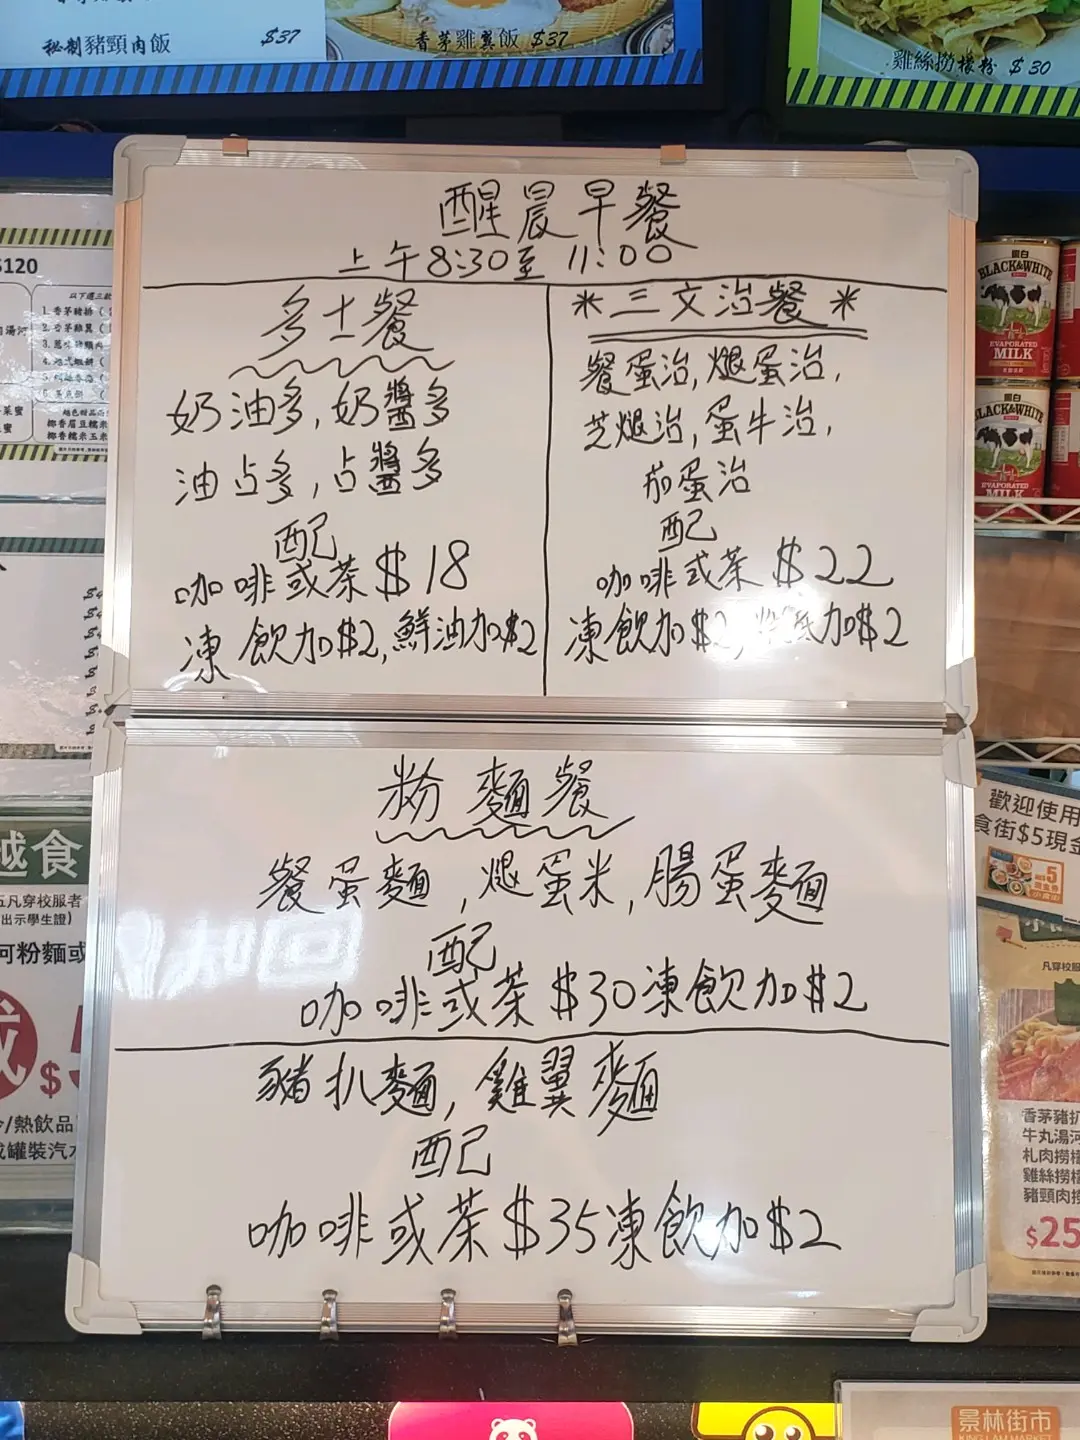 秘制豬頸肉飯 $37
香茅雞翼飯 $37
雞絲撈檬粉 $30
醒晨早餐
上午8:30至 11:00
多士餐
奶油多,奶醬多
油占多,占醬多
配
咖啡或茶$18
凍飲加$2,鮮油加$2
*三文治餐*
餐蛋治,腿蛋治,
芝腿治,蛋牛治,
茄蛋治
配
咖啡或茶$22
凍飲加$2,烘底加$2
粉麵餐
餐蛋麵,腿蛋米,腸蛋麵
配
咖啡或茶$30凍飲加$2
豬扒麵,雞翼麵
配
咖啡或茶$35凍飲加$2
$120
以下選三款
1. 香茅豬排
2. 香茅雞翼
越食
五凡穿校服者
出示學生證)
河粉麵或
減
$5
/熱飲品
或罐裝汽水
黑白
BLACK&WHITE
EVAPORATED
MILK
黑白
BLACK&WHITE
EVAPORATED
MILK
歡迎使用
食街$5現金
凡穿校服
香茅豬扒
牛丸湯河
札肉撈檬
雞絲撈檬
豬頸肉撈
$25
景林街市
KING LAM MARKET